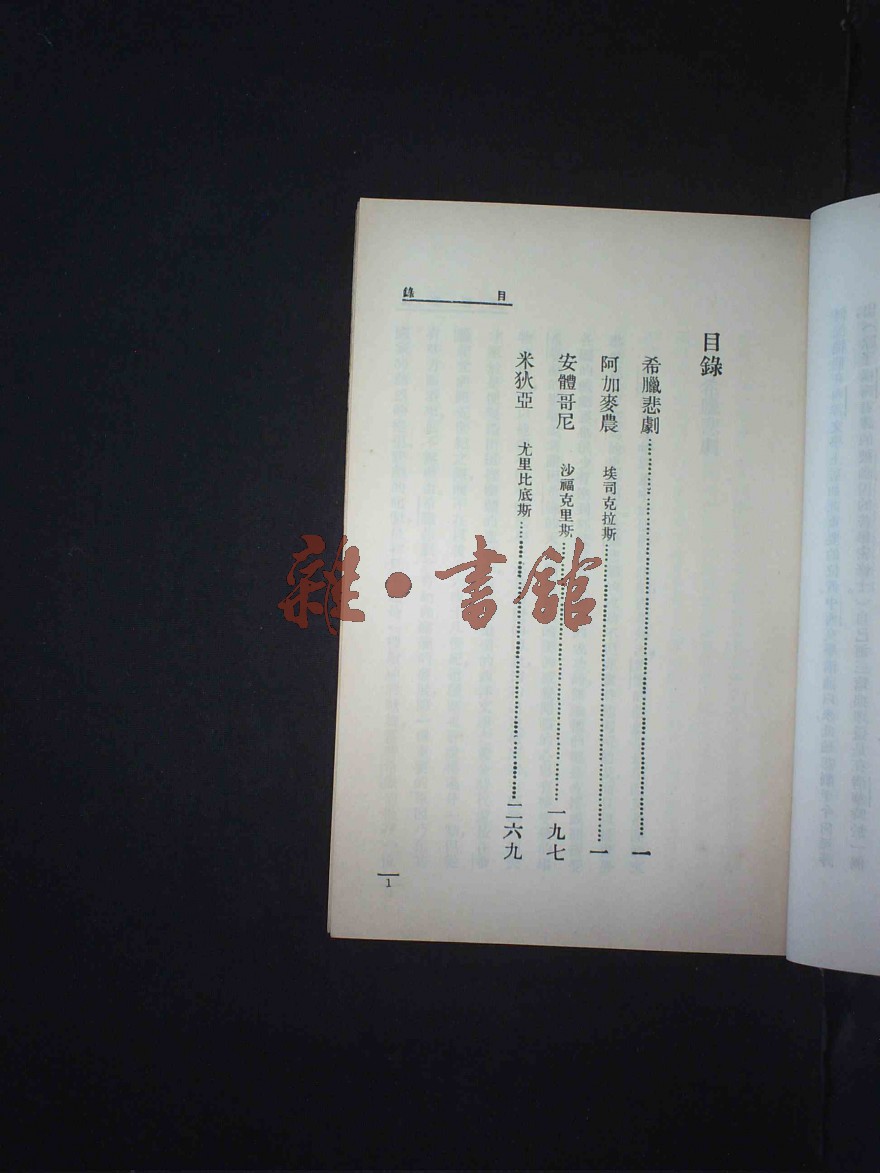 目錄
目錄
希臘悲劇⋯⋯⋯⋯⋯⋯⋯⋯⋯⋯⋯⋯一
阿加麥農 埃司克拉斯⋯⋯⋯⋯⋯⋯⋯⋯⋯⋯一
安體哥尼 沙福克里斯⋯⋯⋯⋯⋯⋯⋯⋯⋯⋯一九七
米狄亞 尤里比底斯⋯⋯⋯⋯⋯⋯⋯⋯⋯⋯二六九
1
雜·書館